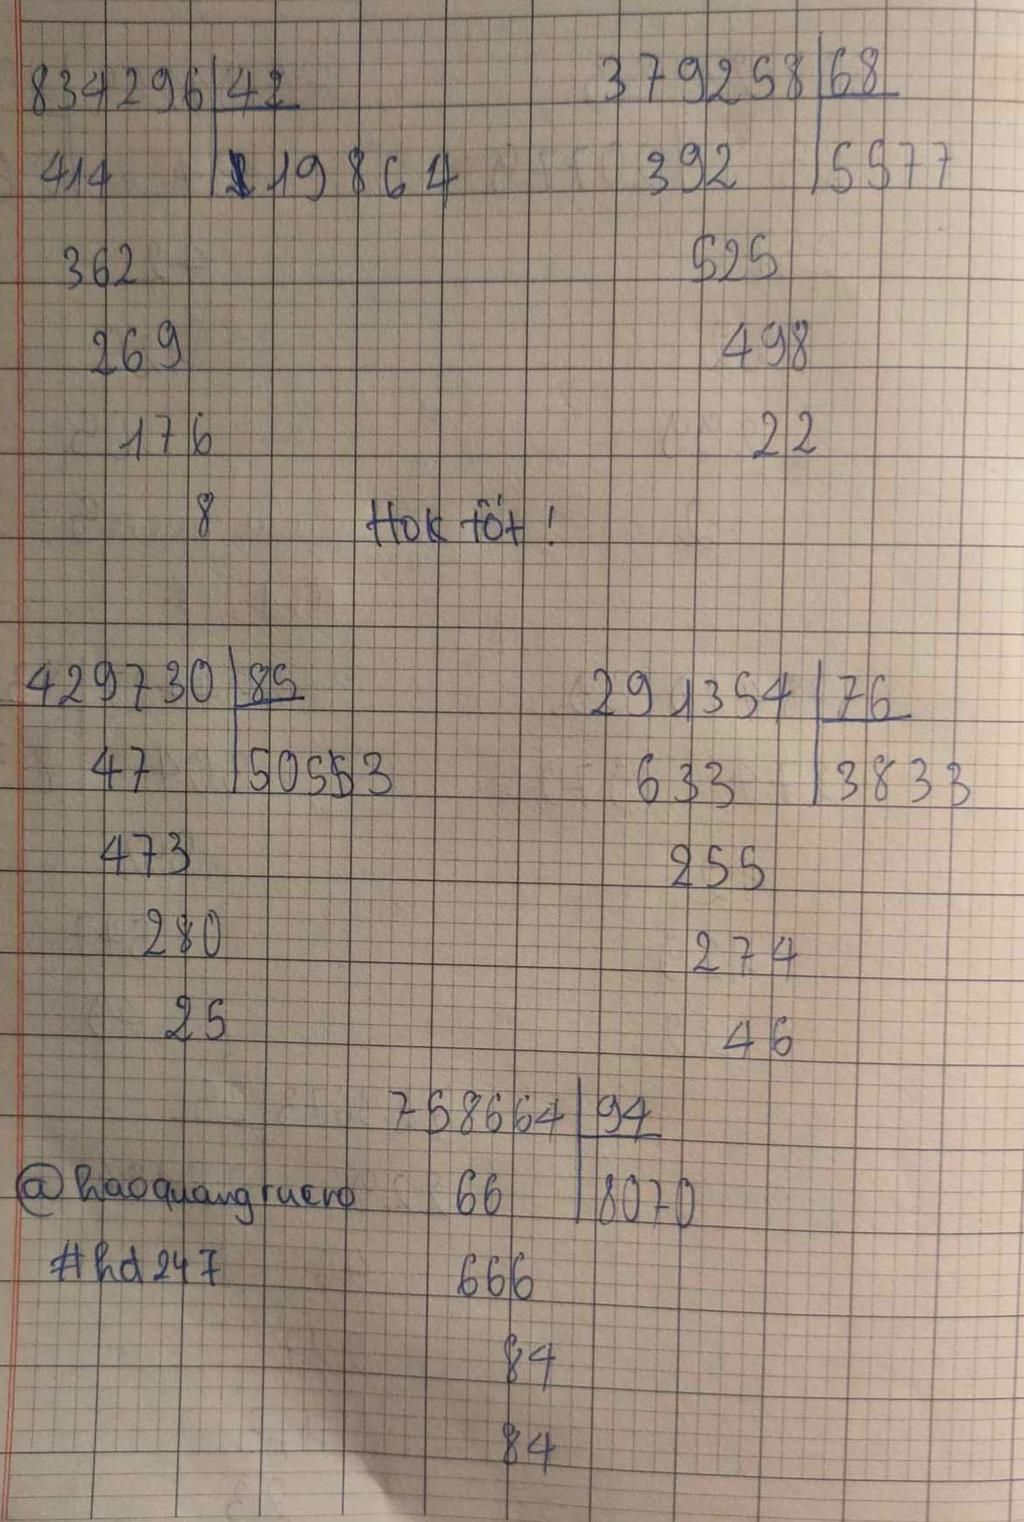 834296 42
414 19864
362
269
176
8
379258 68
392 5577
525
498
22
Hok tốt !
429730 85
47 50553
473
280
25
291354 76
633 3833
255
274
46
758664 94
66 8070
666
84
84
@haoquangrucro
#hd247